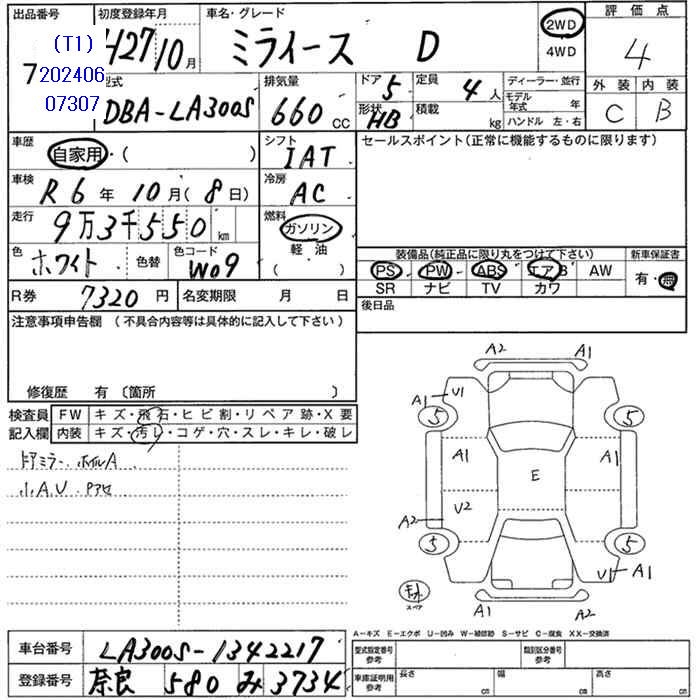 出品番号 初度登録年月 車名・グレード 評価点
(T1) H27/10月 ミライース D 2WD 4
7 202406 4WD
07307 型式 排気量 ドア 定員 ディーラー・並行 外装 内装
DBA-LA300S 660CC 5 4人 モデル年式 年 C B
形状 HB 積載 kg ハンドル 左・右
車歴 シフト セールスポイント(正常に機能するものに限ります)
自家用・( ) IAT
車検 冷房
R6年10月(8日) AC
走行 燃料
9万3千550km ガソリン
色 色替 色コード 軽・油 装備品(純正品に限り丸をつけて下さい) 新車保証書
ホワイト W09 ( ) PS PW ABS エアB AW 有・無
SR ナビ TV カワ
R券 7320円 名変期限 月 日 後日品
注意事項申告欄(不具合内容等は具体的に記入して下さい)
修復歴 有〔箇所 〕
検査員 FW キズ・飛石・ヒビ割・リペア跡・X要
記入欄 内装 キズ・汚レ・コゲ・穴・スレ・キレ・破レ
ドアミラー ホイルA
小A.U
A2 A1
A1 U1
5 5
A1 A1
E
U2
A2
5 5
U1 A1
スペア A1 A2
A-キズ E-エクボ U-凹み W-補修跡 S-サビ C-腐食 XX-交換済
車台番号 LA300S-1342217 型式指定番号 参考 類別区分番号 参考
登録番号 奈良 580 み 3734 車庫証明用 参考 長さ cm 幅 cm 高さ cm